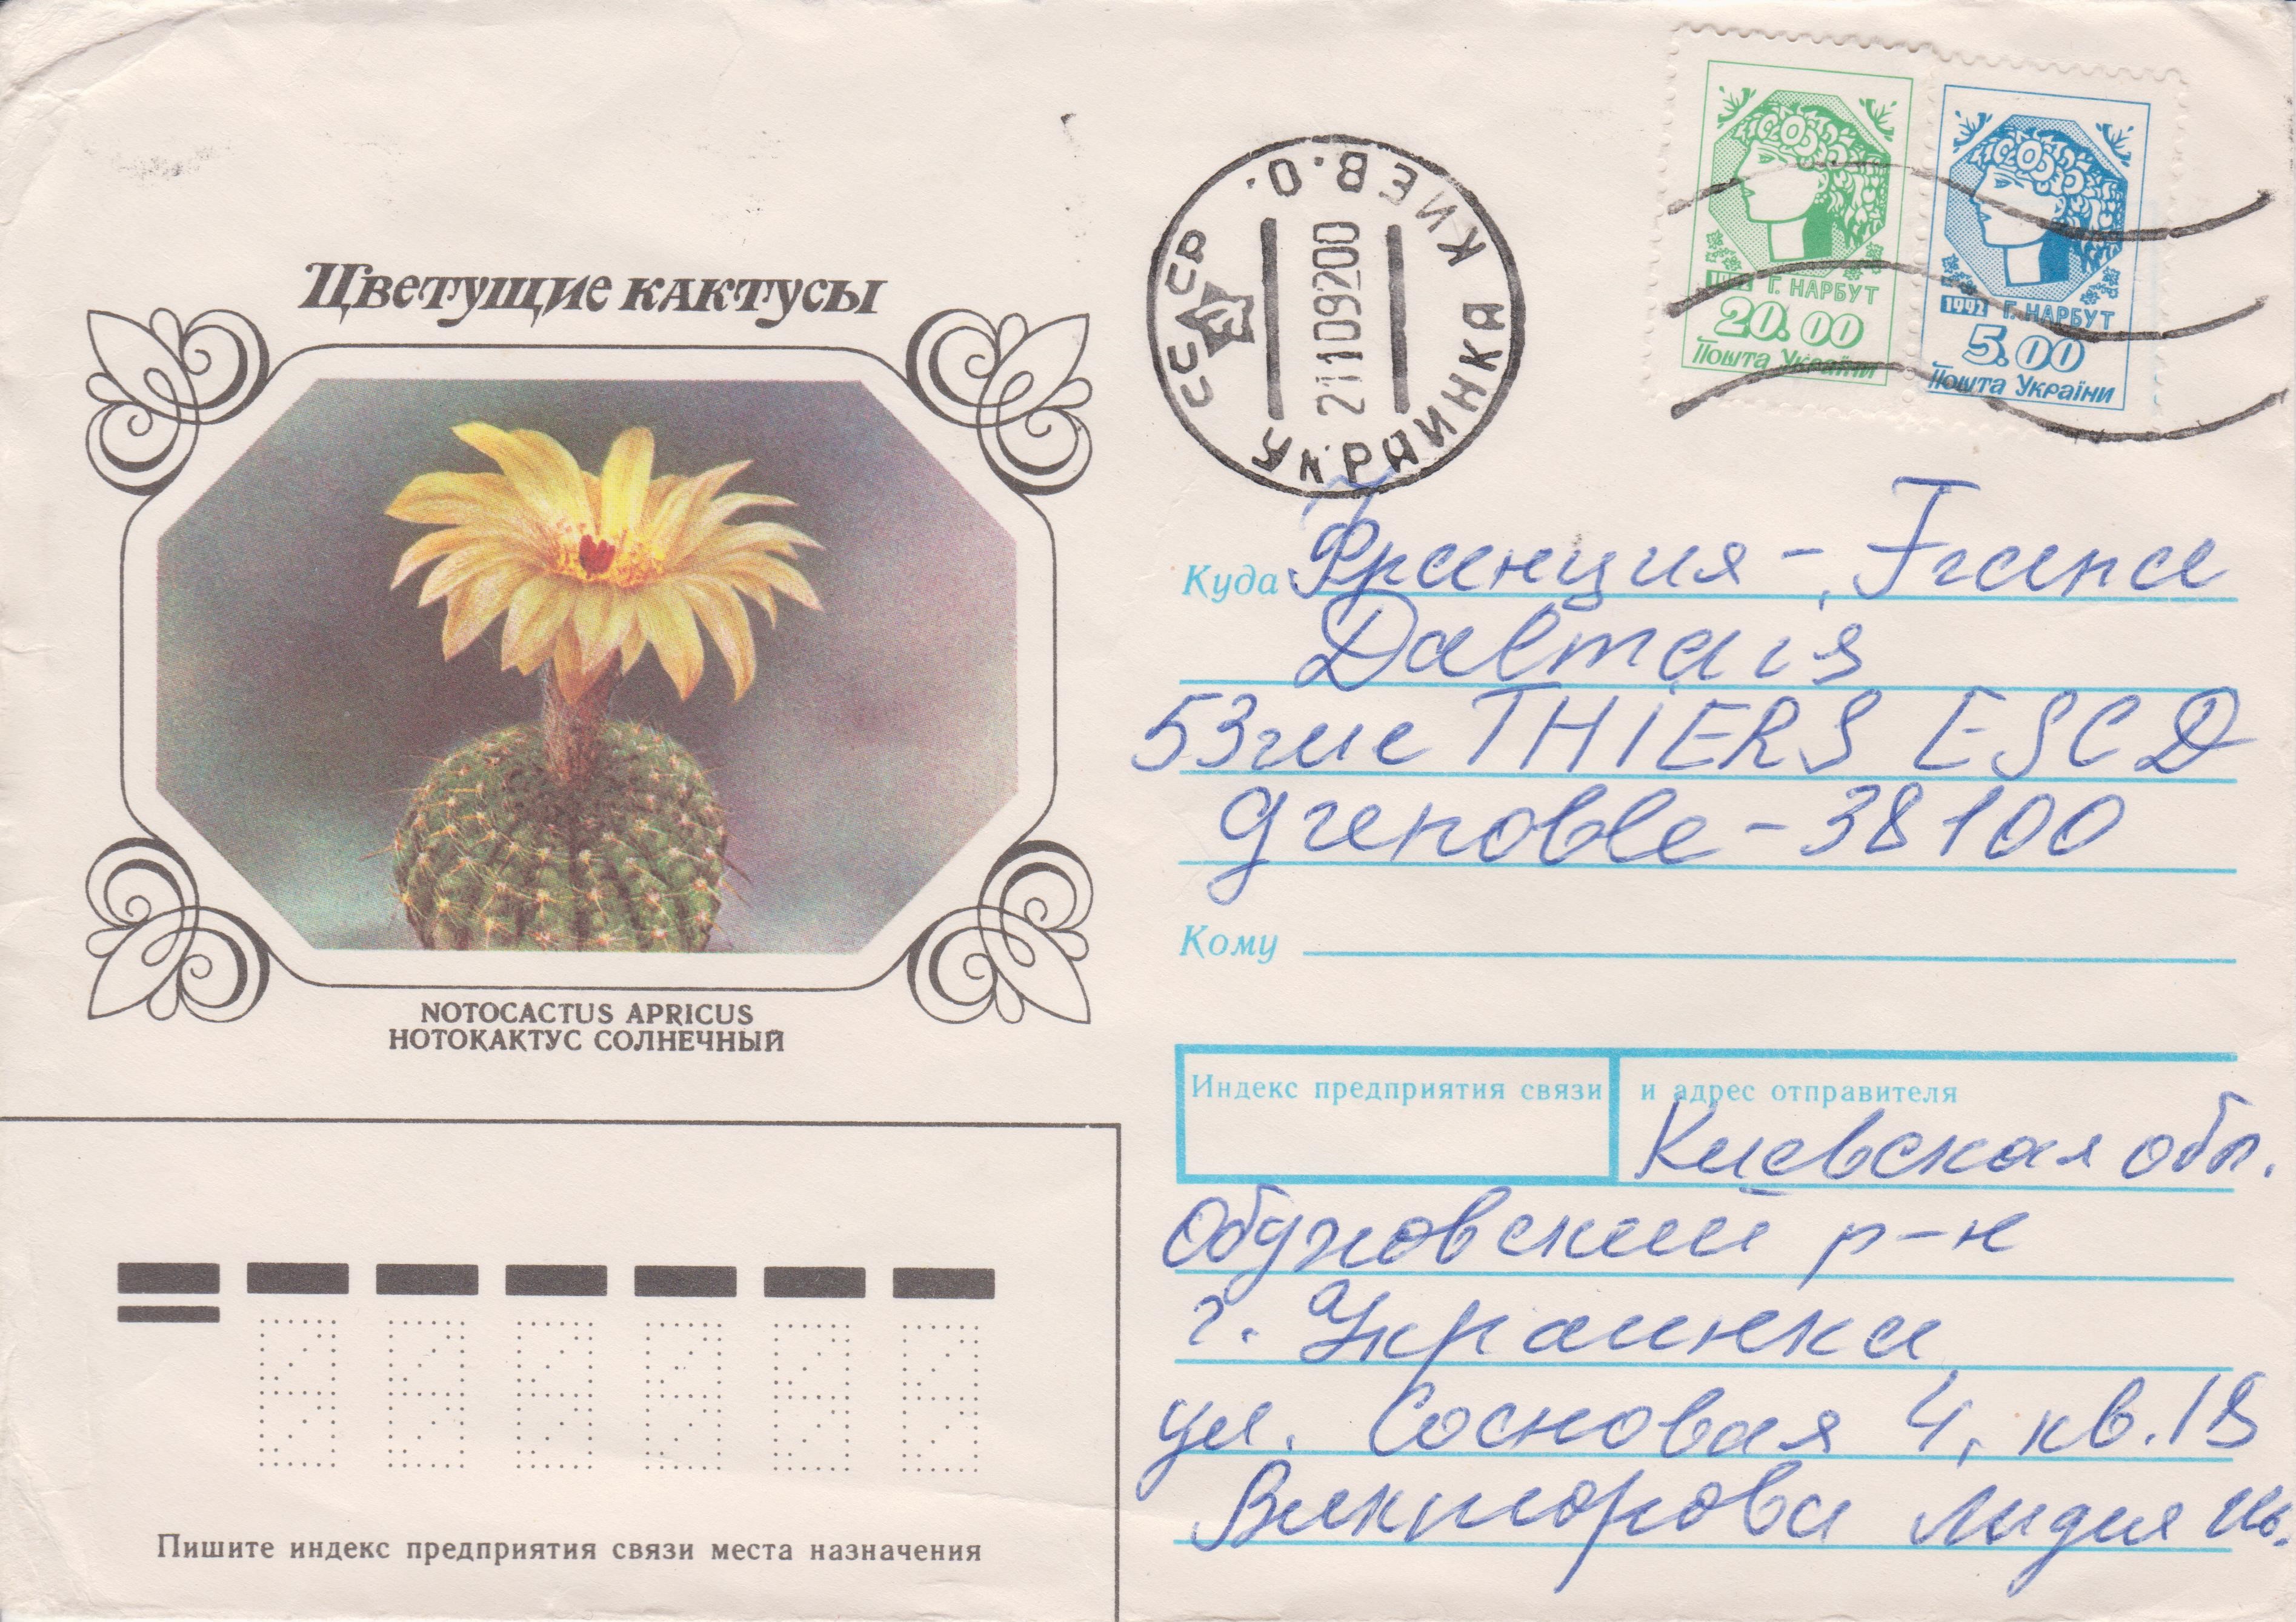 Цветущие кактусы
NOTOCACTUS APRICUS
НОТОКАКТУС СОЛНЕЧНЫЙ
СССР
УКРАИНКА КИЕВ.О.
21109200
1992 Г. НАРБУТ
20.00
Пошта України
1992 Г. НАРБУТ
5.00
Пошта України
Куда Франция - France
Dalmais
53 rue THIERS ESC D
grenoble - 38100
Кому
Индекс предприятия связи и адрес отправителя
Киевская обл.
Обуховский р-н
г. Украинка
ул. Сосновая 4, кв. 18
Викторова Лидия
Пишите индекс предприятия связи места назначения